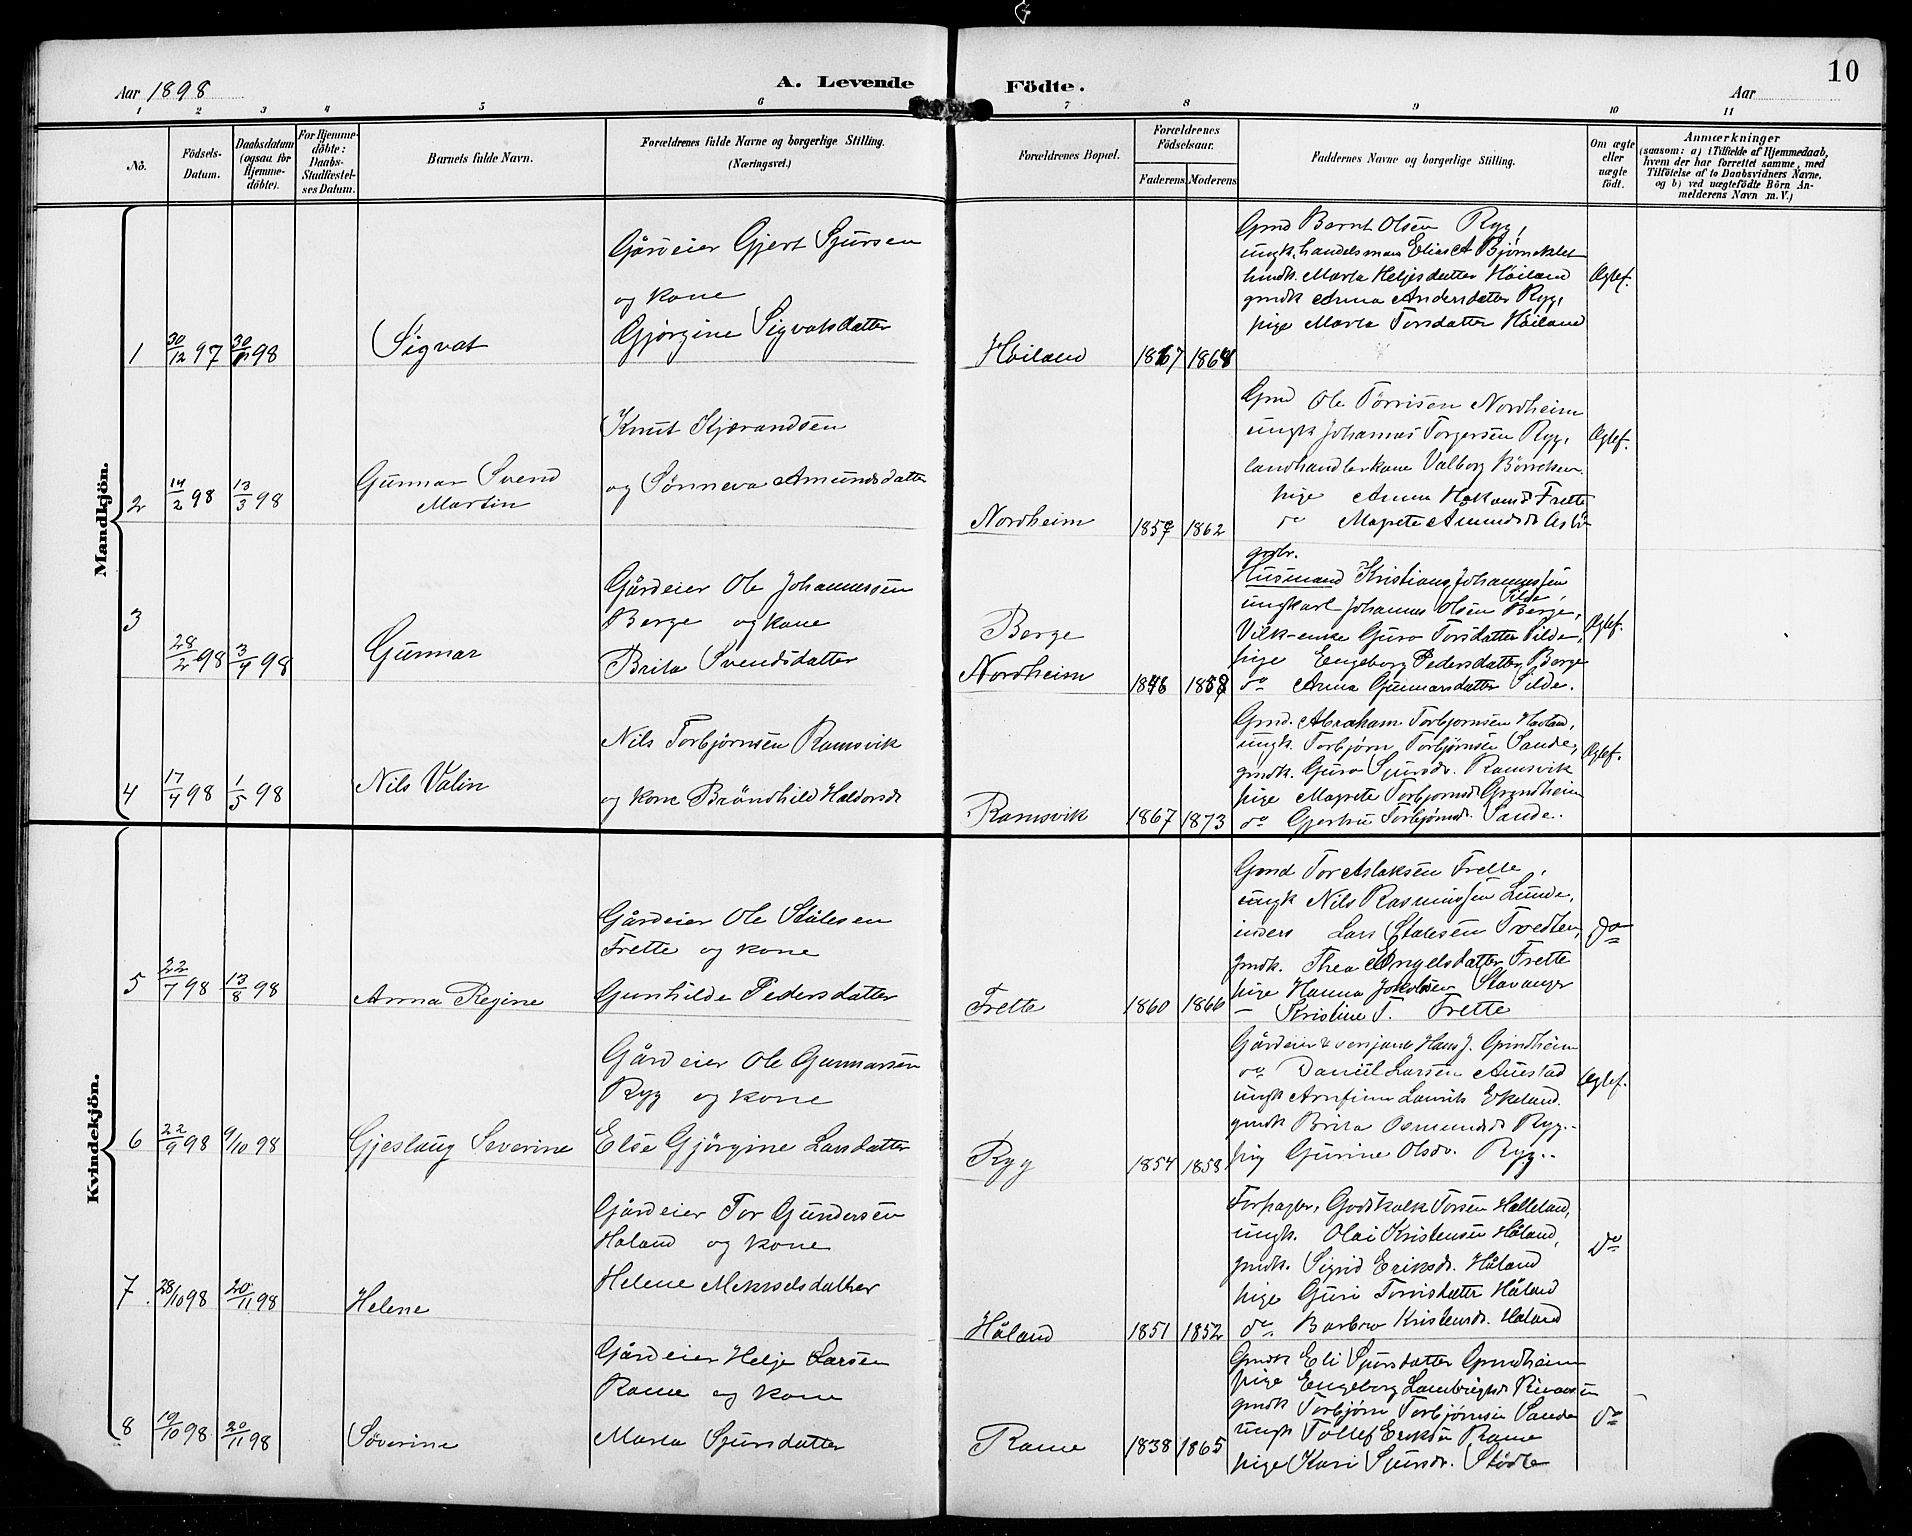 10
Aar 1898
A. Levende
Födte.
Aar
1 2 3 4 5 6 7 8 9 10 11
No.
Födsels-Datum.
Daabsdatum (ogsaa for Hjemme-döbte).
For Hjemme-döbte: Daabs-Stadfæstel-ses Datum.
Barnets fulde Navn.
Forældrenes fulde Navne og borgerlige Stilling.
(Næringsvei.)
Forældrenes Bopæl.
Forældrenes Födselsaar.
Faderens. Moderens.
Faddernes Navne og borgerlige Stilling.
Om ægte eller uægte födt.
Anmærkninger
(saasom: a) i Tilfælde af Hjemmedaab,
hvem der har forrettet samme, med
Tilföielse af to Daabsvidners Navne,
og b) ved uægtefödte Börn An-
melderens Navn m. V.)
Mandkjön.
1
30/12 97
30/1 98
Sigvat
Gårdeier Gjert Sjursen
og kone
Gjørgine Sigvatsdatter
Höiland
1867 1868
Gmd Bernt Olsen Ryg,
ungk. handelsman Elias A Bjørneklet
hmdk. Marta Heljesdatter Höiland
gmdk Anna Andersdatter Ryg,
pige Marta Torsdatter Höiland
Ægtef.
2
14/2 98
13/3 98
Gunnar Svend
Martin
Knut Kjærandsen
og Sønneva Amundsdatter
Nordheim
1859 1862
Gmd Ole Törrisen Nordheim
ungk Johannes Torgersen Ryg,
landhandlerkone Valborg
pige Anna Hakonsd Frette
do Magrete Amundsd
Ægtef.
3
28/2 98
3/4 98
Gunnar
Gårdeier Ole Johannessen
Berge og kone
Brita Svendsdatter
Berge
Nordheim
1846 1858
grdbr.
Husmand Kristians Johannessen
Tilde,
ungkarl Johannes Olsen Berge,
Vilk-enke Guro Torsdatter Silde,
pige Engeborg Pedersdatter Berge
do Anna Gunnarsdatter Silde.
Ægtef.
4
17/4 98
1/5 98
Nils Valin
Nils Torbjørnsen Ramsvik
og kone Bröndhild Haldorsd
Ramsvik
1867 1873
Gmd. Abraham Torbjørnsen
ungk. Torbjørn Torbjørnsen Sande,
gmdk. Guro Sjursd. Ramsvik
pige Magrete Torbjørnsd. Grindheim
do Gjertru Torbjørnsd. Sande.
Ægtef.
Kvindekjön.
5
22/7 98
13/8 98
Anna Regine
Gårdeier Ole Stålesen
Frette og kone
Gunhilde Pedersdatter
Frette
1860 1866
Gmd Tor Aslaksen Frette,
ungk Nils Rasmussen Lunde,
inders Lars Stalesen Tvedten,
gmdk. Thea Engelsdatter Frette
pige Hanna Stavanger
— Kristine T. Frette
do
6
22/9 98
9/10 98
Gjeslaug Severine
Gårdeier Ole Gunnarsen
Ryg og kone
Else Gjörgine Larsdatter
Ryg
1854 1858
Gårdeier & Hans J. Grindheim
do Daniil Larsen Austad
ungk Arnfinn Laurits Ekeland.
gmdk Brita Osmundsd Ryg.
pig Gurine Olsdr. Ryg.
Ægtef.
7
28/10 98
20/11 98
Helene
Gårdeier Tor Gundersen
Håland og kone
Helene Mikkelsdatter
Håland
1851 1852
Forpagter Godtskalk Torsen Halleland,
ungk. Olai Kristensen Håland,
gmdk. Sigrid Eriksd. Håland
pige Guri Torrisdatter Håland
do. Barbro Kristensd. Håland
do
8
19/10 98
20/11 98
Söverine
Gårdeier Helje Larsen
Rame og kone
Marta Sjursdatter
Rame
1838 1865
Gmdk Eli Sjursdatter Grindheim
pige Engeborg Lambrigtsd
gmdk Torbjørn Torbjørnsen Sande
ungk Tollef Eriksen Rame
pige Kari Sjursdr. Stödle
do